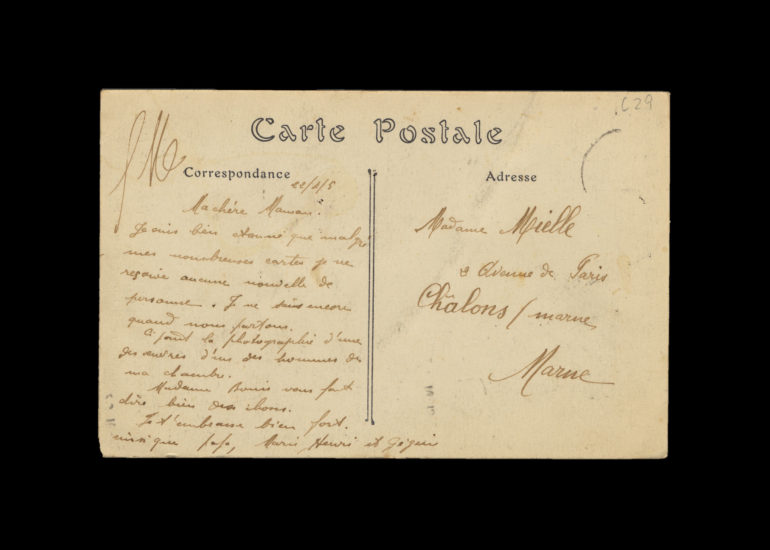 C29
Carte Postale
Correspondance
Adresse
22/2/5
Ma chère Maman.
Je suis bien étonné que malgré
mes nombreuses cartes je ne
reçoive aucune nouvelle de
personne. Je ne sais encore
quand nous partons.
Ci joint la photographie d'une
des œuvres d'un des hommes de
ma chambre.
Madame Bouis vous fait
dire bien des choses.
Je t'embrasse bien fort.
ainsi que papa, Marie Henri et
Madame Mielle
2 Avenue de Paris
Châlons / marne
Marne